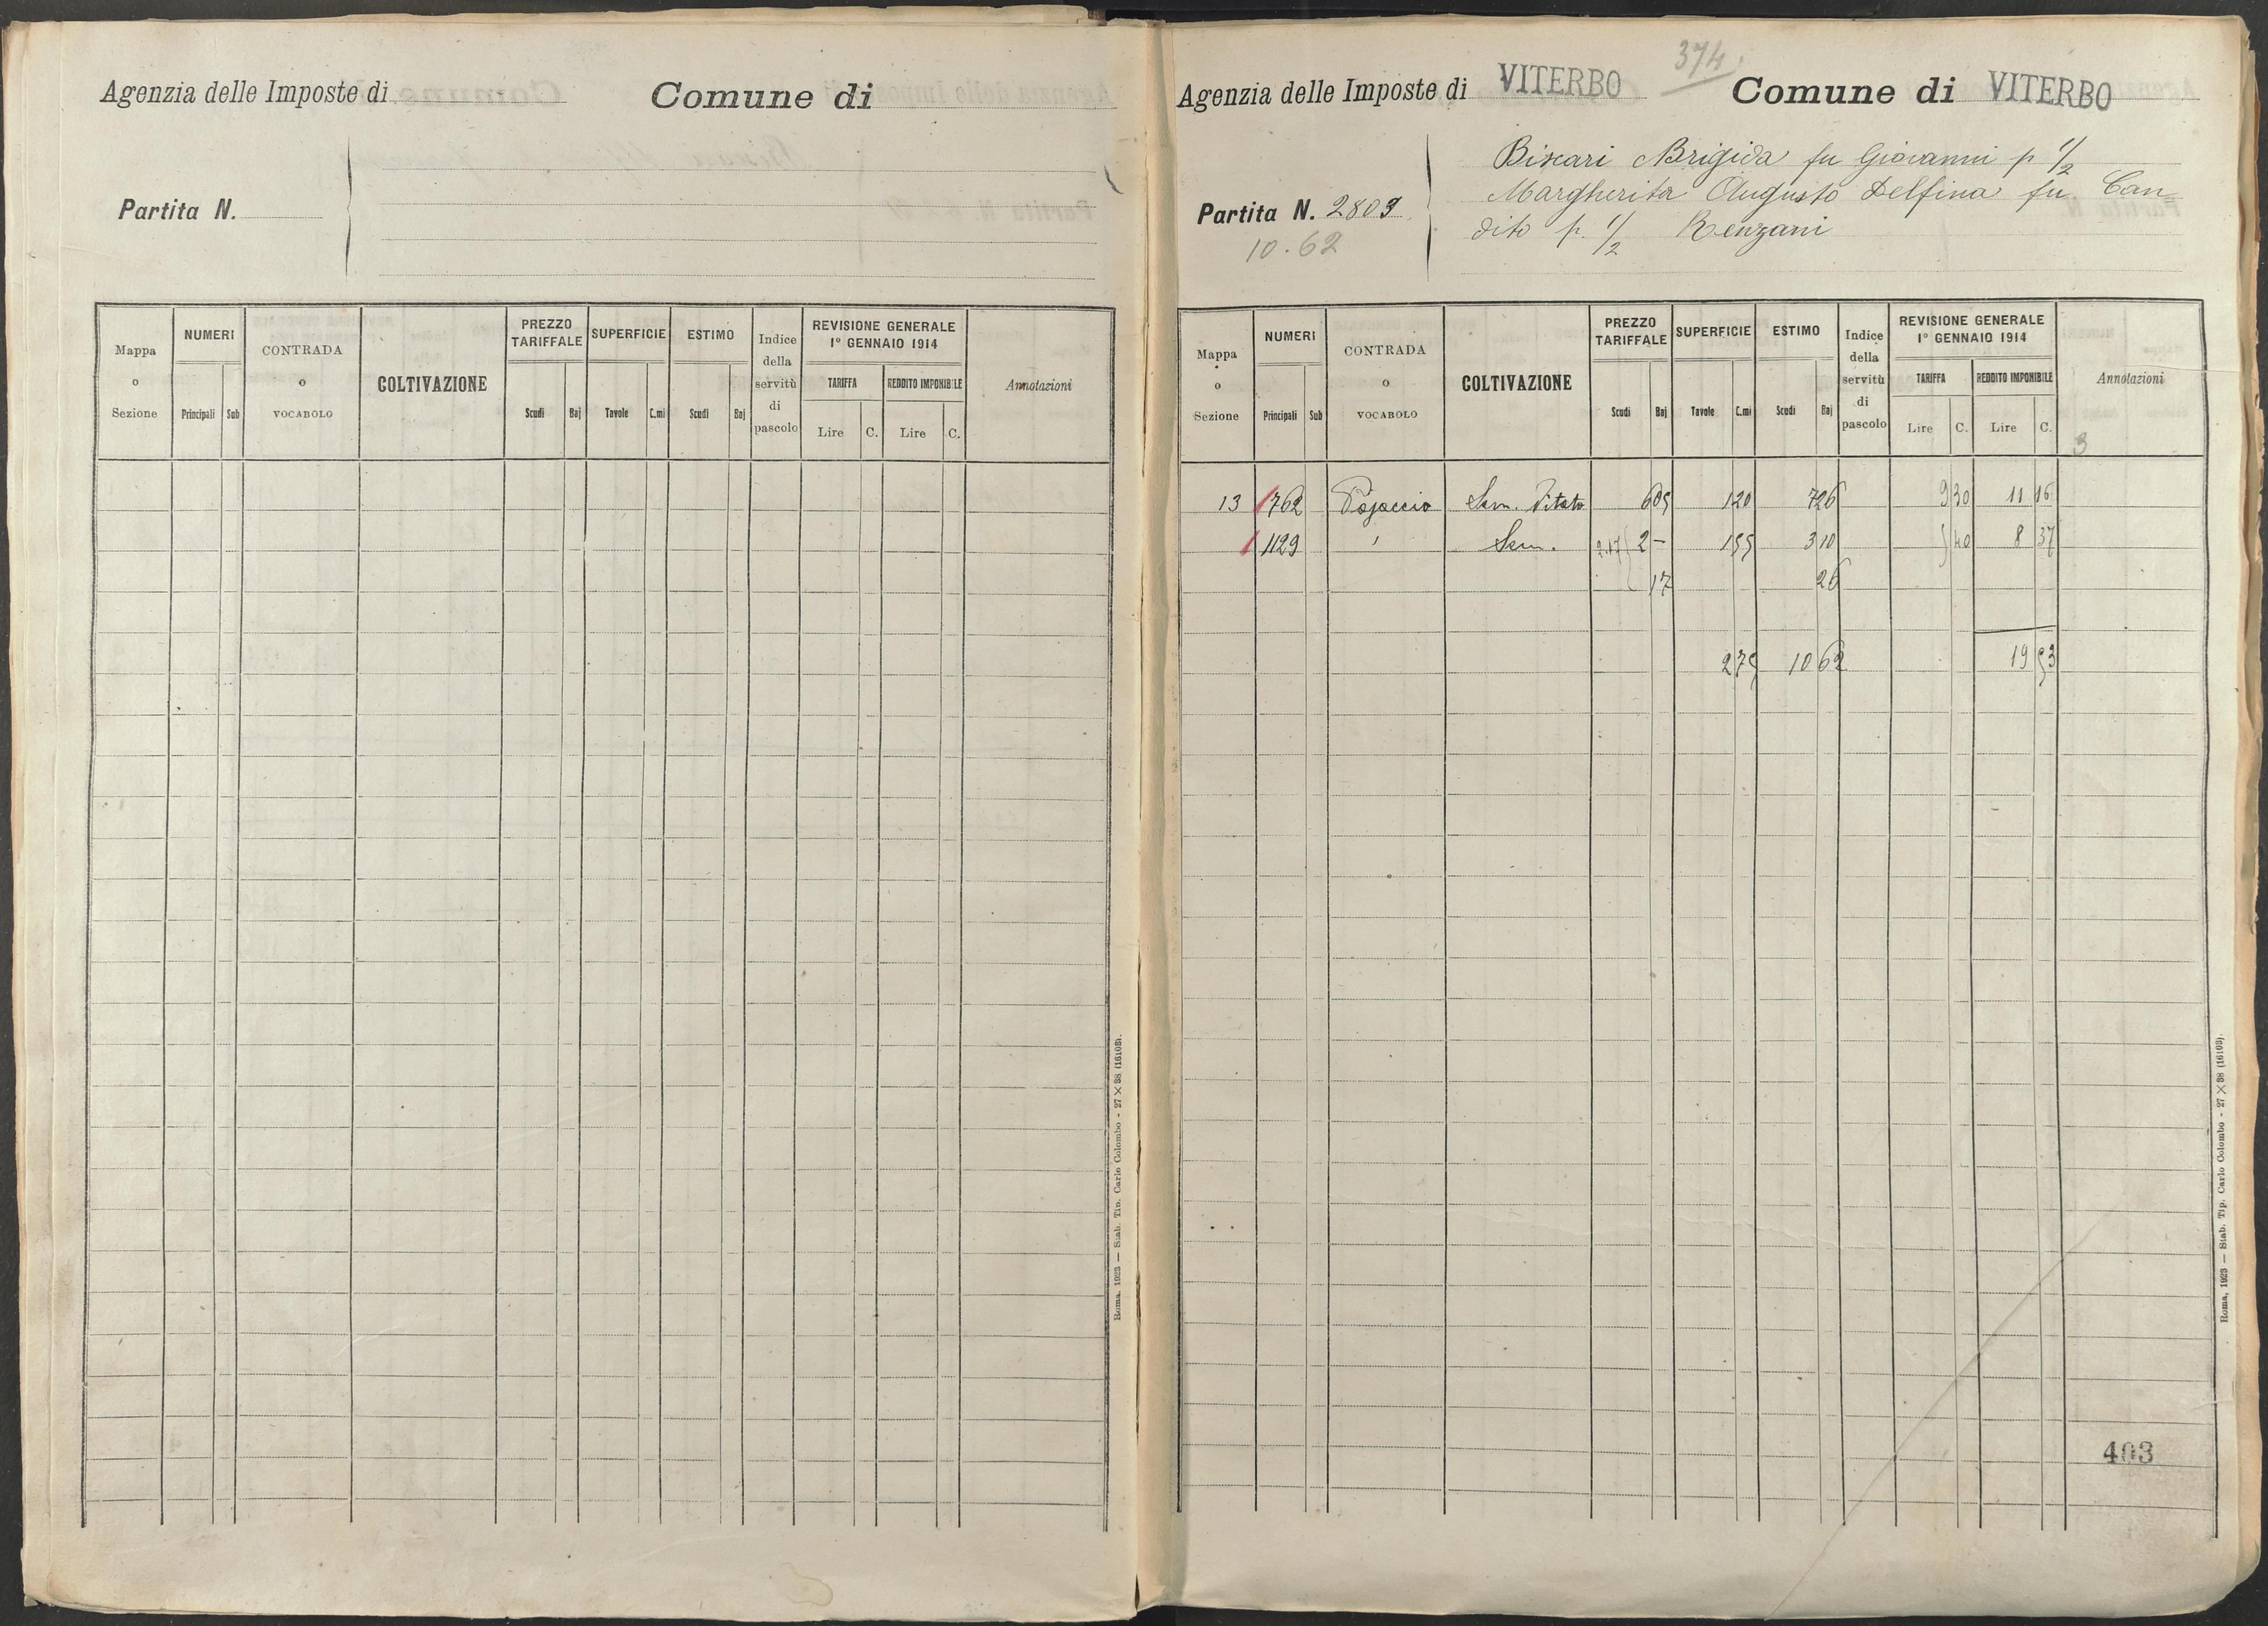 Agenzia delle Imposte di
Comune di
Partita N.
Mappa o Sezione
NUMERI
Principali Sub
CONTRADA o VOCABOLO
COLTIVAZIONE
PREZZO TARIFFALE
Scudi Baj
SUPERFICIE
Tavole C.mi
ESTIMO
Scudi Baj
Indice della servitù di pascolo
REVISIONE GENERALE 1° GENNAIO 1914
TARIFFA
Lire C.
REDDITO IMPONIBILE
Lire C.
Annotazioni
Roma, 1923 — Stab. Tip. Carlo Colombo - 27 × 38 (16103).
374
Agenzia delle Imposte di VITERBO
Comune di VITERBO
Partita N. 2803
10.62
Biscari Brigida fu Giovanni p 1/2
Margherita Augusto Delfina fu Can=
dito p. 1/2 Renzani
Mappa o Sezione
NUMERI
Principali Sub
CONTRADA o VOCABOLO
COLTIVAZIONE
PREZZO TARIFFALE
Scudi Baj
SUPERFICIE
Tavole C.mi
ESTIMO
Scudi Baj
Indice della servitù di pascolo
REVISIONE GENERALE 1° GENNAIO 1914
TARIFFA
Lire C.
REDDITO IMPONIBILE
Lire C.
Annotazioni
3
13 762 Pogaccio Sem. Vitato 6 05 1 20 7 26 9 30 11 16
1129 " Sem. 2.17 2 — 1 55 3 10 5 40 8 37
17 26
2 75 10 62 19 53
403
Roma, 1923 — Stab. Tip. Carlo Colombo - 27 × 38 (16103).